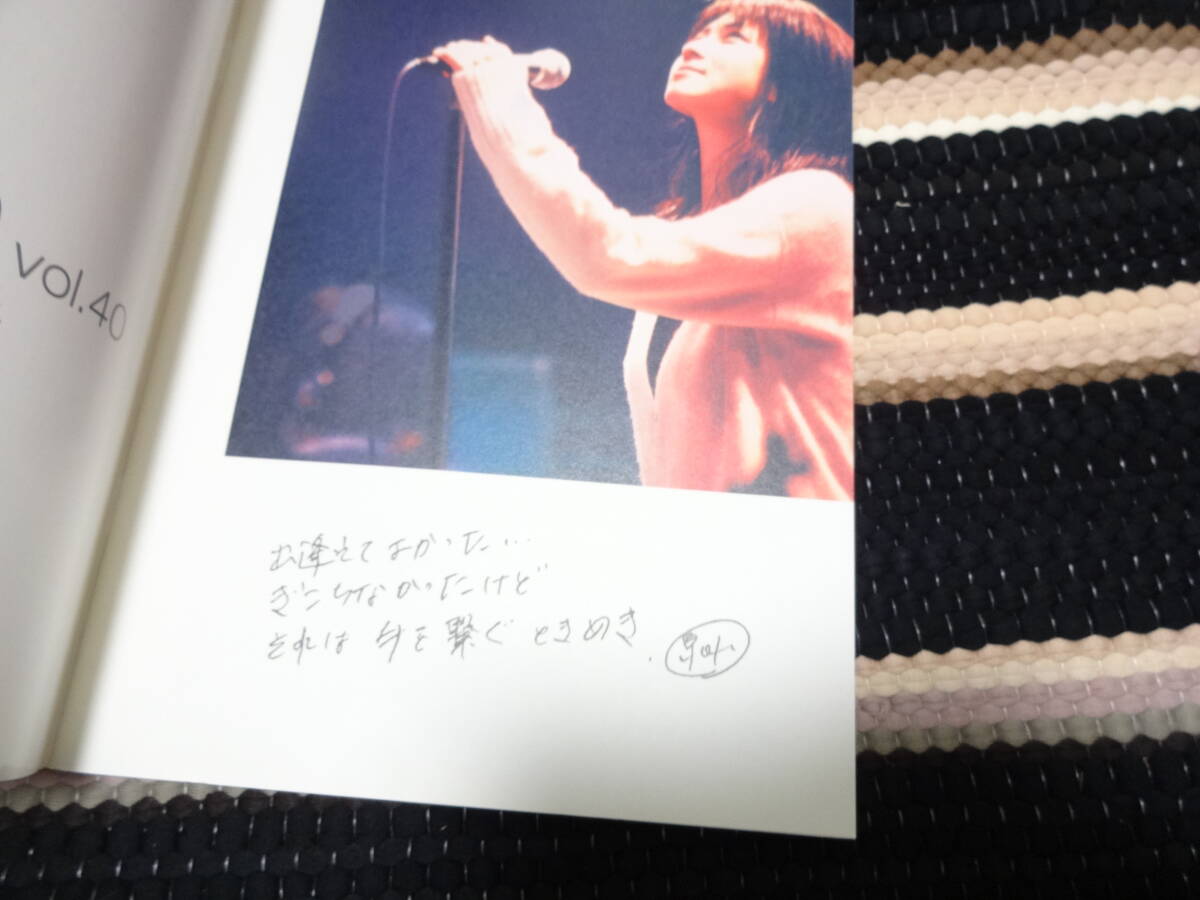 vol.40
出逢えてよかった…
ぎこちなかったけど
それは 今を繋ぐ ときめき.